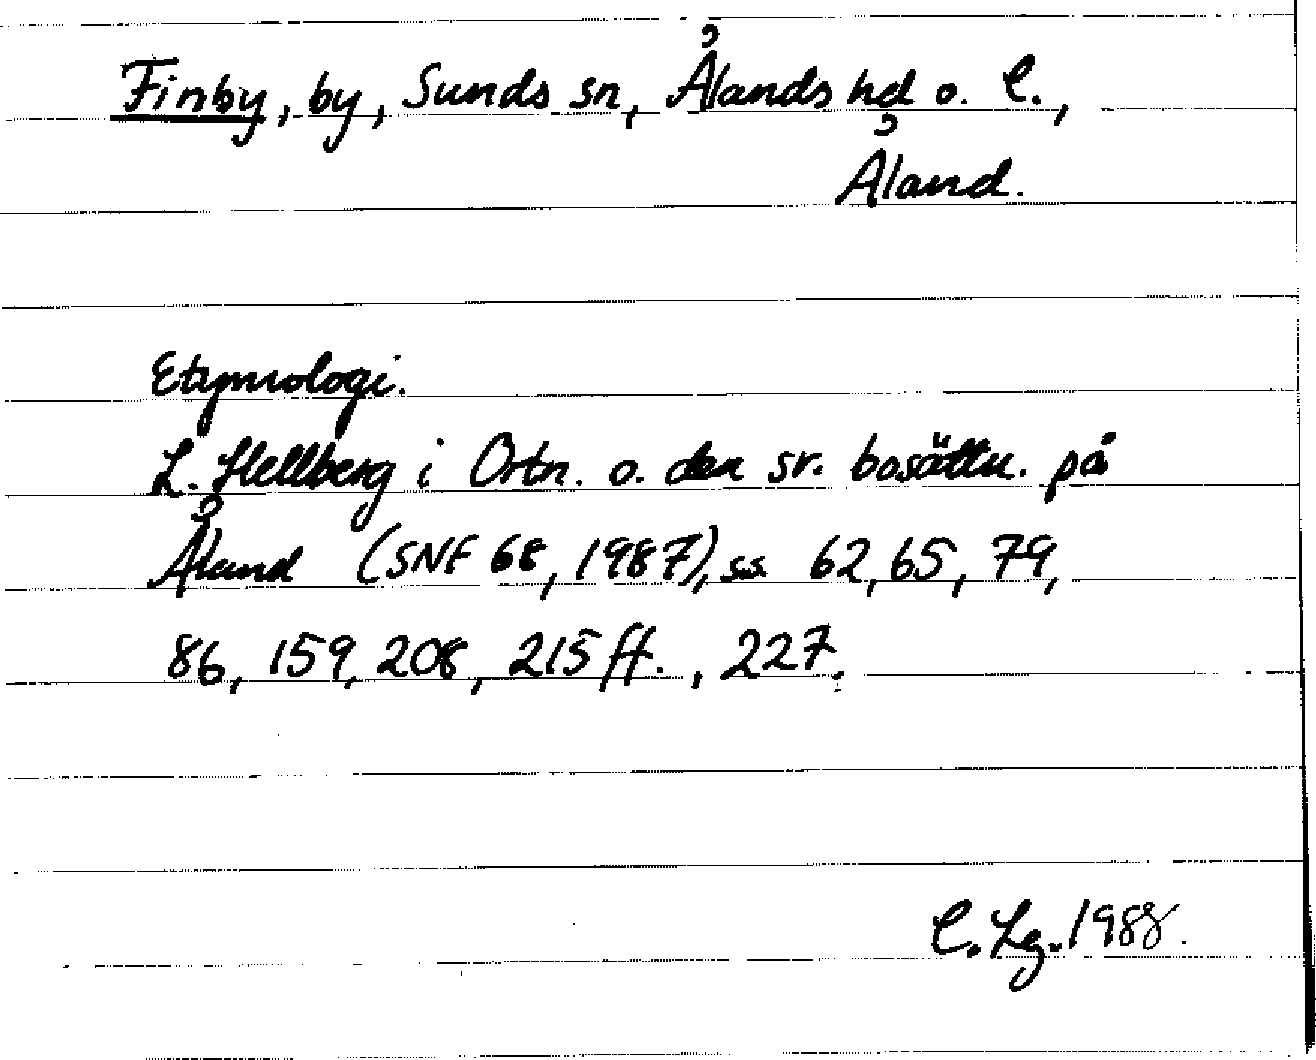 Finby, by, Sunds sn, Ålands hd o. l.,
Åland.
Etymologi.
L. Hellberg i Ortn. o. den sv. bosättn. på
Åland (SNF 68, 1987), ss. 62, 65, 79,
86, 159, 208, 215 ff., 227.
C. Lg. 1988.